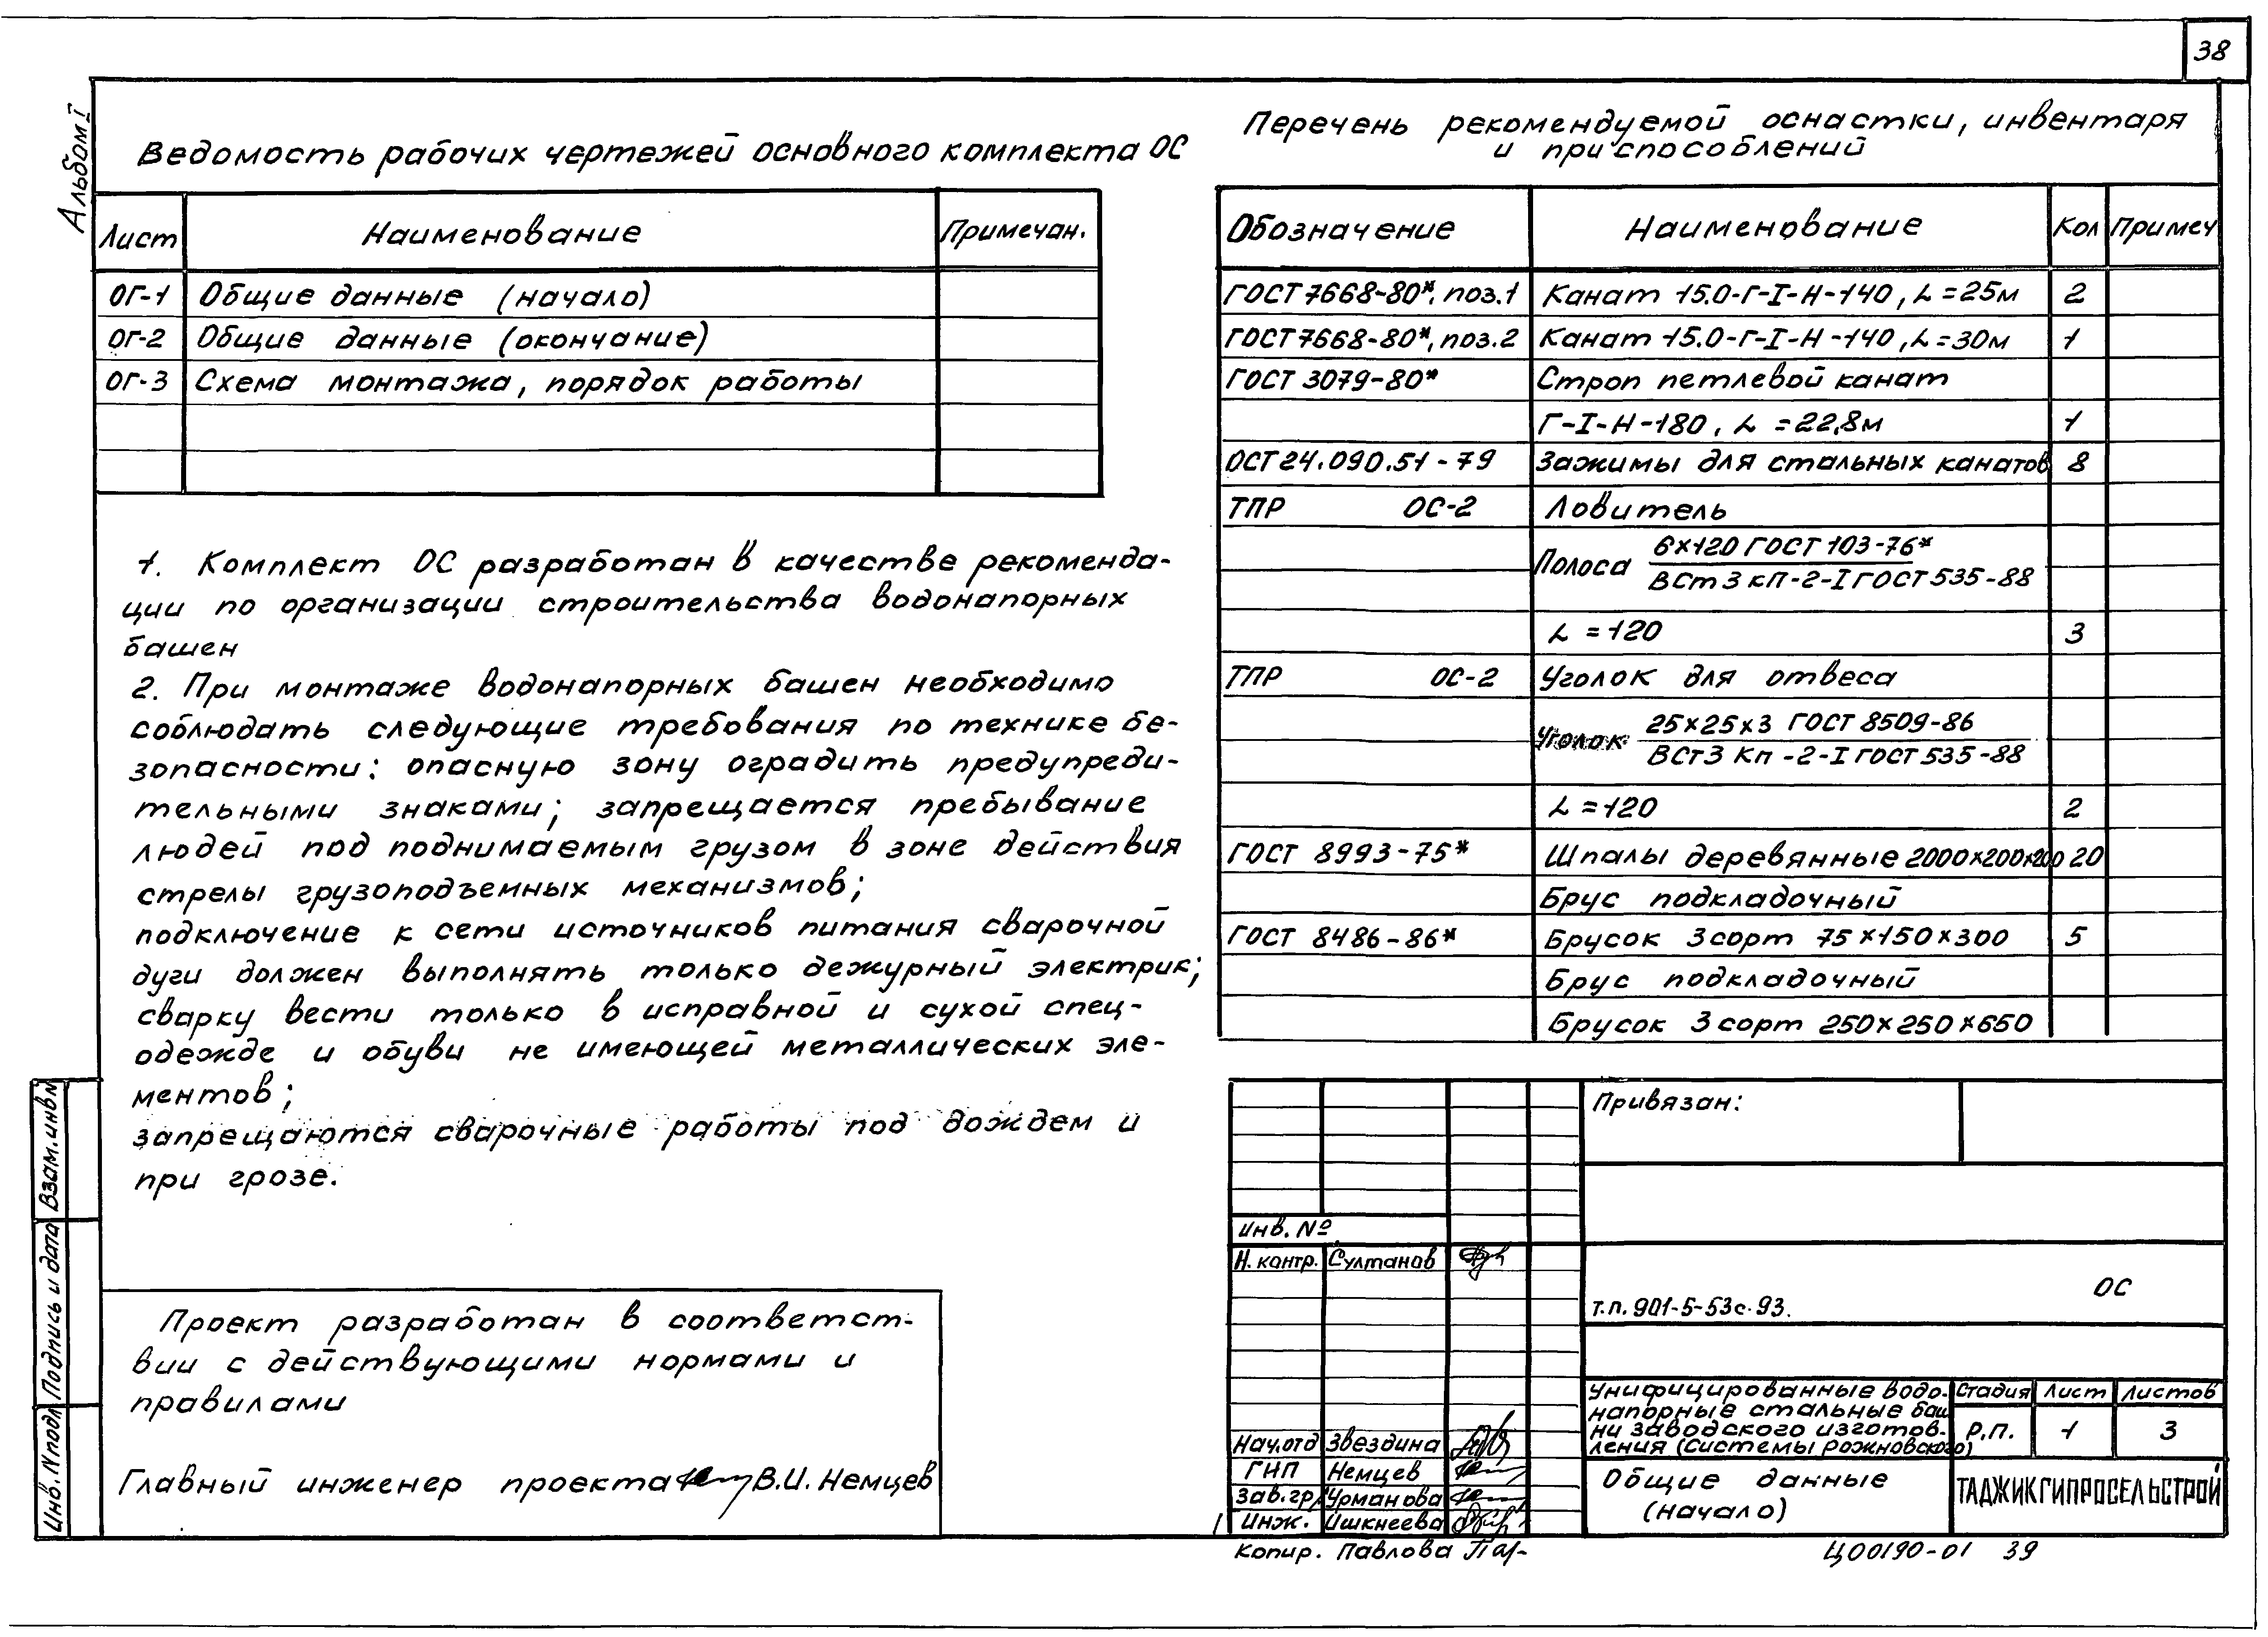 38
Альбом I
Ведомость рабочих чертежей основного комплекта ОС
Лист Наименование Примечан.
ОГ-1 Общие данные (начало)
ОГ-2 Общие данные (окончание)
ОГ-3 Схема монтажа, порядок работы
1. Комплект ОС разработан в качестве рекоменда-
ции по организации строительства водонапорных
башен
2. При монтаже водонапорных башен необходимо
соблюдать следующие требования по технике бе-
зопасности: опасную зону оградить предупреди-
тельными знаками; запрещается пребывание
людей под поднимаемым грузом в зоне действия
стрелы грузоподъемных механизмов;
подключение к сети источников питания сварочной
дуги должен выполнять только дежурный электрик;
сварку вести только в исправной и сухой спец-
одежде и обуви не имеющей металлических эле-
ментов;
запрещаются сварочные работы под дождем и
при грозе.
Проект разработан в соответст-
вии с действующими нормами и
правилами
Главный инженер проекта В.И. Немцев
Перечень рекомендуемой оснастки, инвентаря
и приспособлений
Обозначение Наименование Кол Примеч
ГОСТ 7668-80*, поз.1 Канат 15.0-Г-I-Н-140, L=25м 2
ГОСТ 7668-80*, поз.2 Канат 15.0-Г-I-Н-140, L=30м 1
ГОСТ 3079-80* Строп петлевой канат
Г-I-Н-180, L=22,8м 1
ОСТ 24.090.51-79 Зажимы для стальных канатов 8
ТПР ОС-2 Ловитель
Полоса 6×120 ГОСТ 103-76*
ВСт3 кп-2-I ГОСТ 535-88
L=120 3
ТПР ОС-2 Уголок для отвеса
Уголок 25×25×3 ГОСТ 8509-86
ВСт3 Кп-2-I ГОСТ 535-88
L=120 2
ГОСТ 8993-75* Шпалы деревянные 2000×200×200 20
Брус подкладочный
ГОСТ 8486-86* Брусок 3 сорт 75×150×300 5
Брус подкладочный
Брусок 3 сорт 250×250×650
Привязан:
Инв. №
Н. контр. Султанов
т.п. 901-5-53с.93. ОС
Унифицированные водо-
напорные стальные баш
ни заводского изготов-
ления (системы рожновского)
Стадия Лист Листов
Р.П. 1 3
Нач.отд Звездина
ГИП Немцев
Зав.гр. Урманова
Инж. Ишкнеева
Общие данные
(начало)
ТАДЖИКГИПРОСЕЛЬСТРОЙ
Копир. Павлова
Ц00190-01 39
Инв. N подл Подпись и дата Взам.инв N